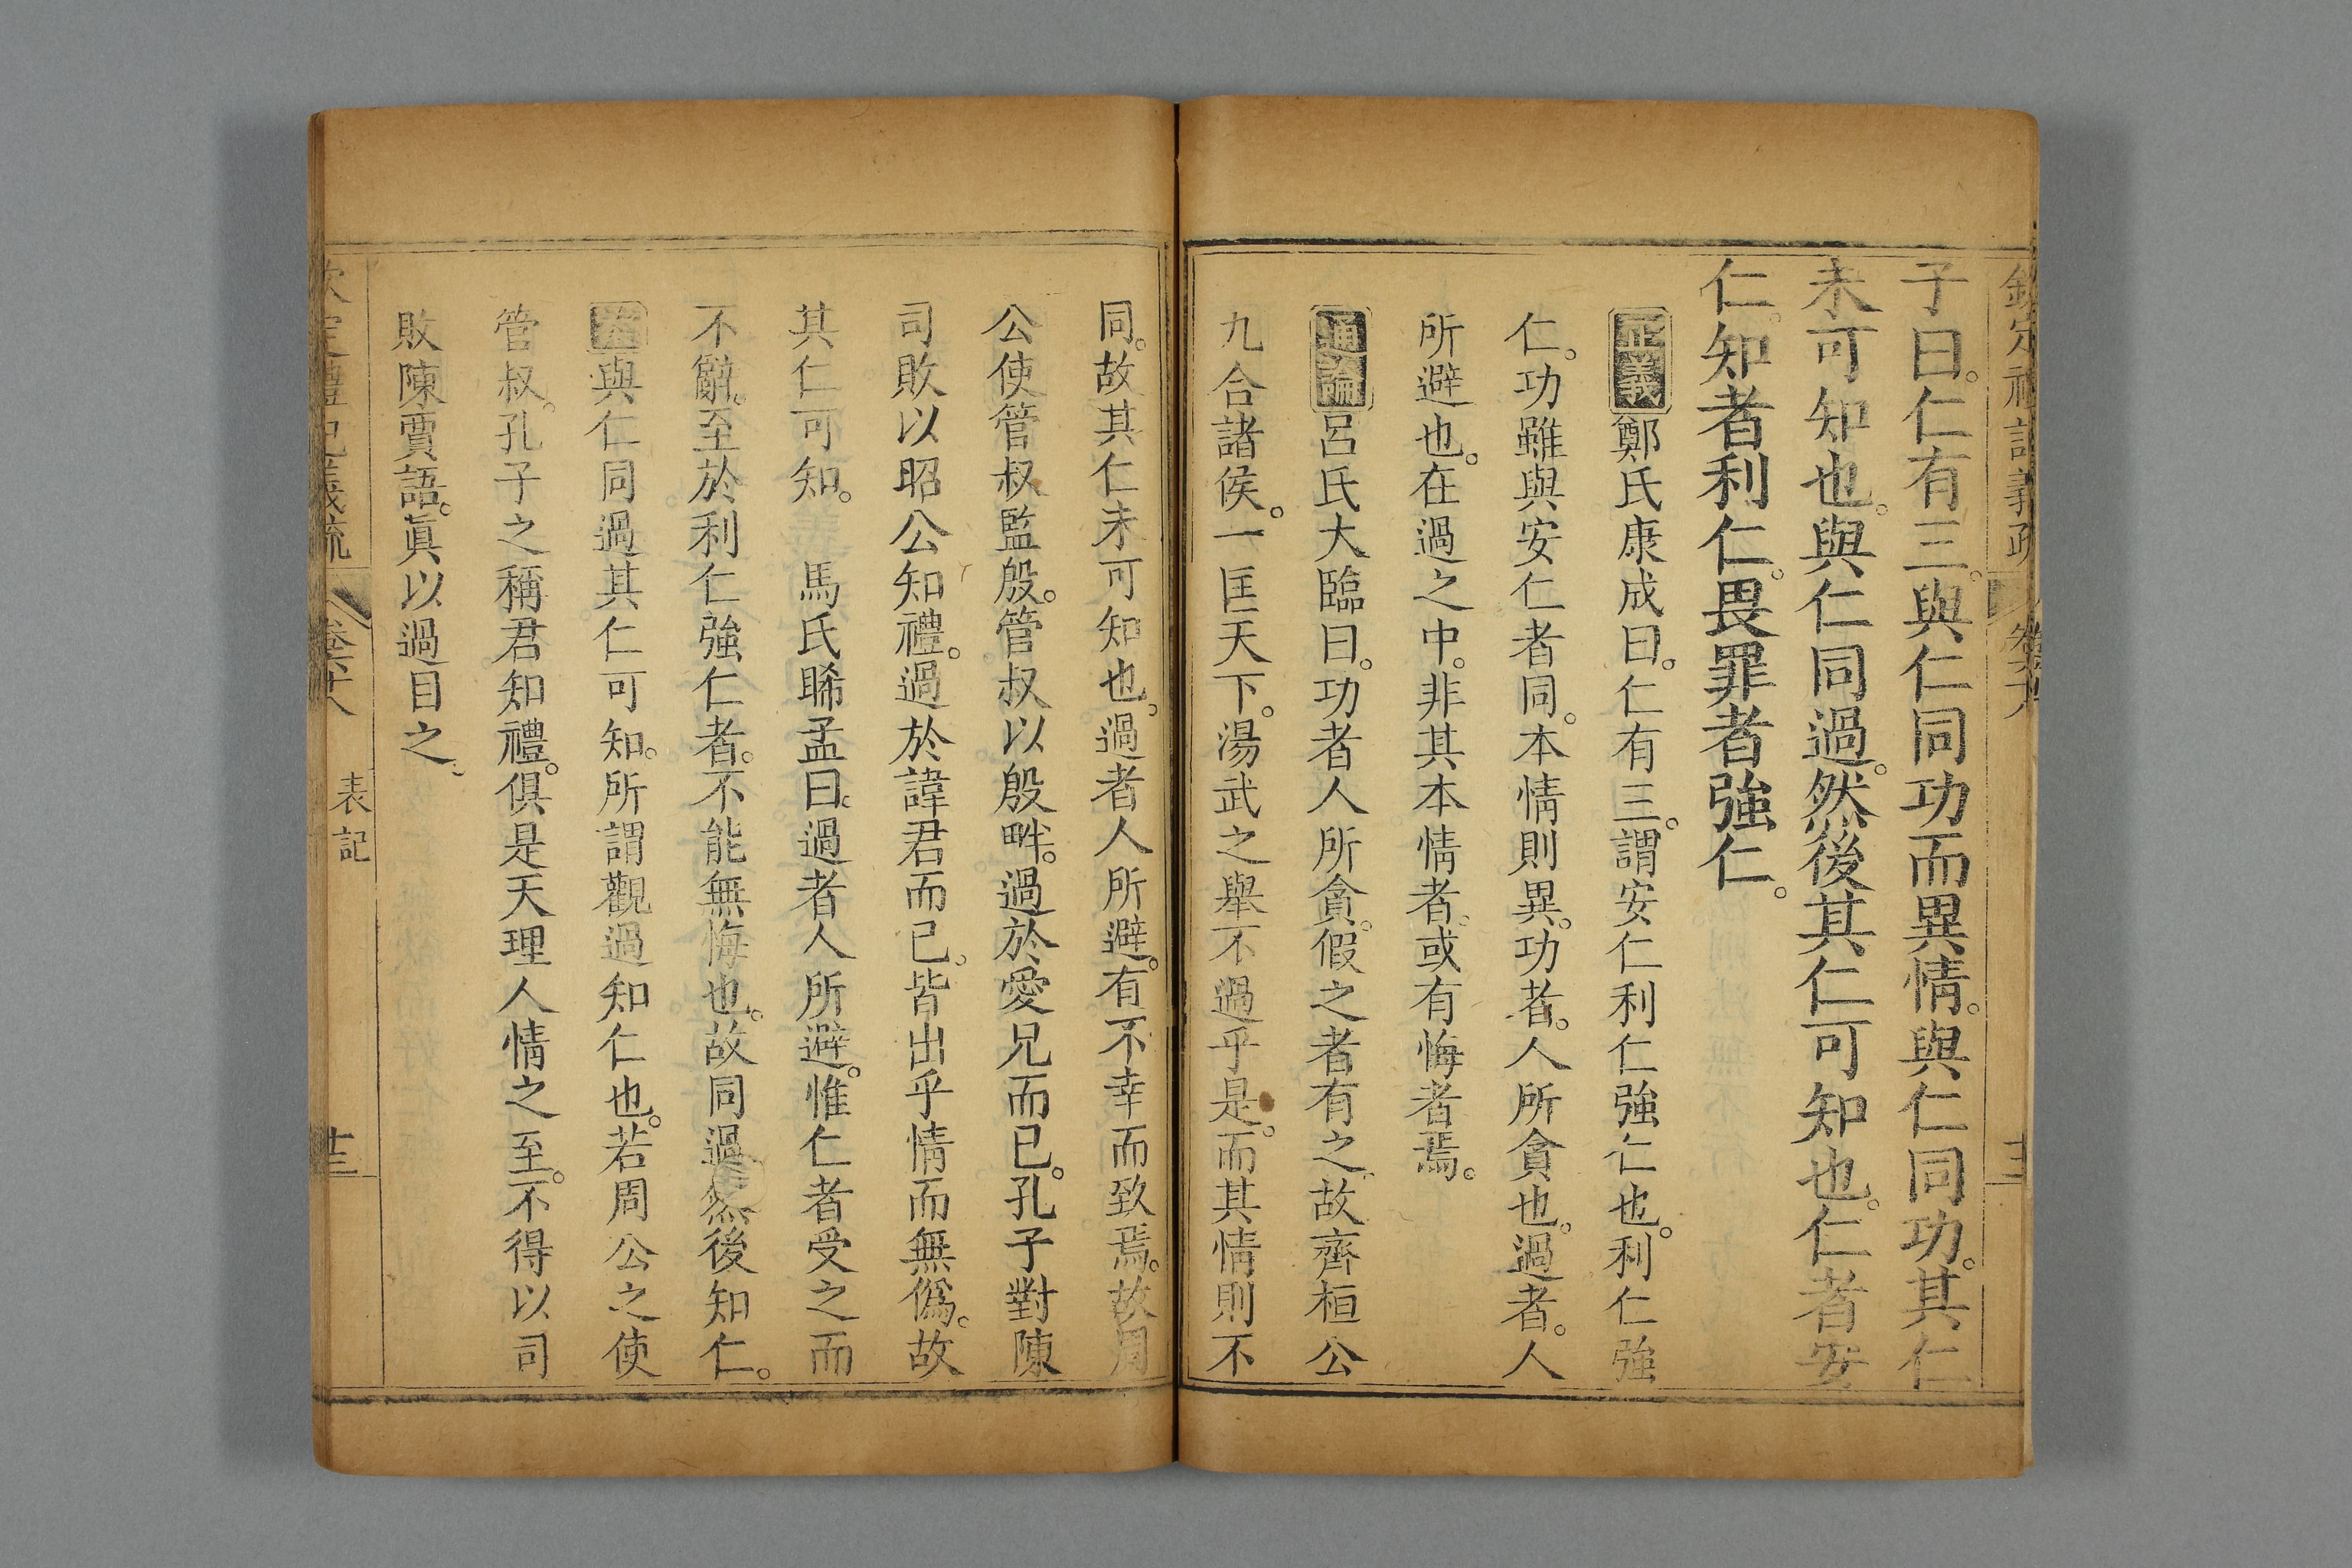 子曰。仁有三。與仁同功而異情。與仁同功。其仁
未可知也。與仁同過。然後其仁可知也。仁者安
仁。知者利仁。畏罪者強仁。
正義鄭氏康成曰。仁有三。謂安仁利仁強仁也。利仁強
仁。功雖與安仁者同。本情則異。功者。人所貪也。過者。人
所避也。在過之中。非其本情者。或有悔者焉。
通論呂氏大臨曰。功者人所貪。假之者有之。故齊桓公
九合諸侯。一匡天下。湯武之舉不過乎是。而其情則不
同。故其仁未可知也。過者人所避。有不幸而致焉。故周
公使管叔監殷。管叔以殷畔。過於愛兄而已。孔子對陳
司敗以昭公知禮。過於諱君而已。皆出乎情而無僞。故
其仁可知。 馬氏睎孟曰。過者人所避。惟仁者受之而
不辭。至於利仁強仁者。不能無悔也。故同過然後知仁。
與仁同過其仁可知。所謂觀過知仁也。若周公之使
管叔。孔子之稱君知禮。俱是天理人情之至。不得以司
敗陳賈語。眞以過目之。
欽定禮記義疏 卷六十八 表記 十三